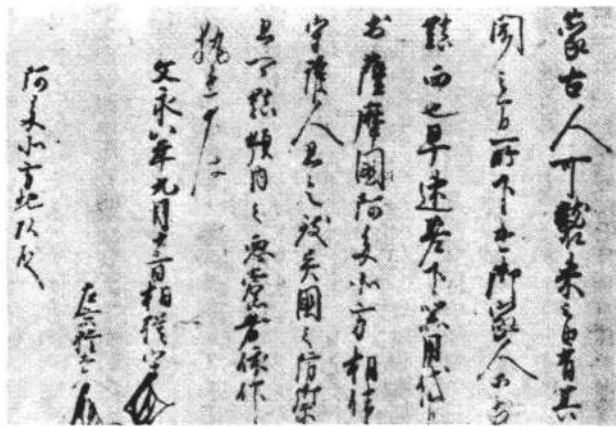 蒙古人可襲来之由有其
聞之間所下遣御家人等於
鎮西也早速差下器用代官
於薩摩国阿多北方相伴
守護人且令致異国之防禦
且可鎮領内之悪党者依仰
執達如件
文永八年九月十三日相模守
左京権大夫
阿多北方地頭殿